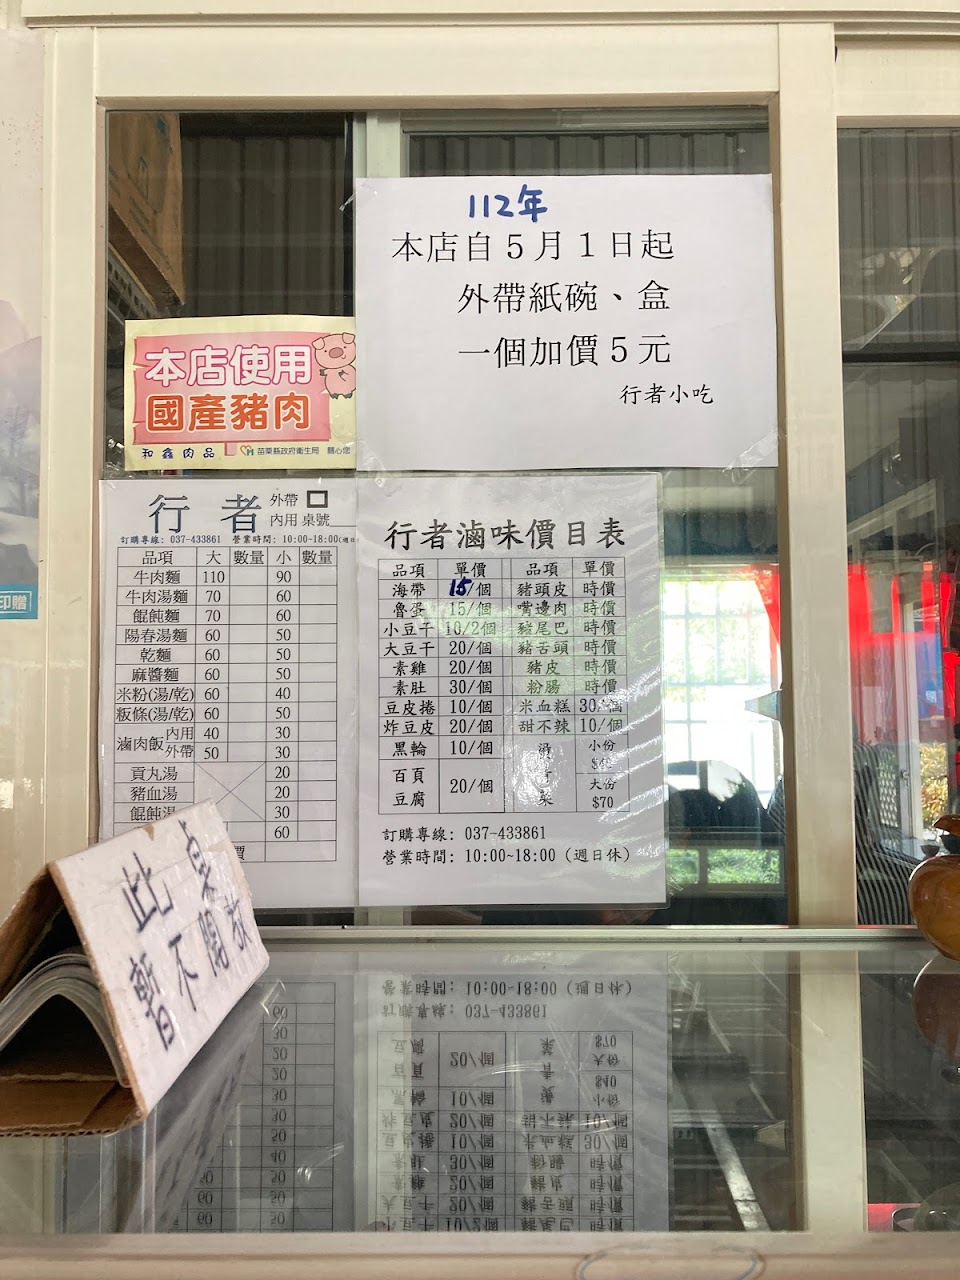 112年
本店自5月1日起
外帶紙碗、盒
一個加價5元
行者小吃
本店使用
國產豬肉
和鑫肉品 苗栗縣政府衛生局 關心您
行者 外帶 □
內用 桌號
訂購專線: 037-433861 營業時間: 10:00~18:00(週日
品項 大 數量 小 數量
牛肉麵 110 90
牛肉湯麵 70 60
餛飩麵 70 60
陽春湯麵 60 50
乾麵 60 50
麻醬麵 60 50
米粉(湯/乾) 60 40
粄條(湯/乾) 60 50
滷肉飯 內用 40 30
外帶 50 30
貢丸湯 20
豬血湯 20
餛飩湯 30
60
價
行者滷味價目表
品項 單價 品項 單價
海帶 15/個 豬頭皮 時價
魯蛋 15/個 嘴邊肉 時價
小豆干 10/2個 豬尾巴 時價
大豆干 20/個 豬舌頭 時價
素雞 20/個 豬皮 時價
素肚 30/個 粉腸 時價
豆皮捲 10/個 米血糕 30/個
炸豆皮 20/個 甜不辣 10/個
黑輪 10/個 燙青菜 小份 $40
百頁豆腐 20/個 大份 $70
訂購專線: 037-433861
營業時間: 10:00~18:00 (週日休)
此桌
暫不開放
印贈